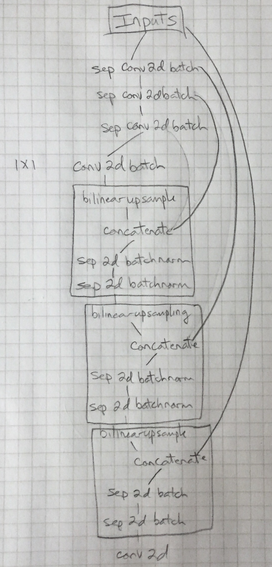 Inputs
sep conv 2d batch
sep conv 2d batch
sep conv 2d batch
1X1 conv 2d batch
bilinear upsample
concatenate
sep 2d batchnorm
sep 2d batchnorm
bilinear upsampling
concatenate
sep 2d batchnorm
sep 2d batchnorm
bilinear upsample
concatenate
sep 2d batch
sep 2d batch
conv 2d